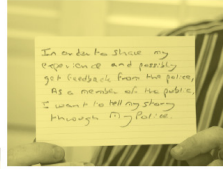 In order to share my
experience and possibly
get feedback from the police,
As a member of the public,
I want to tell my story
through MyPolice.